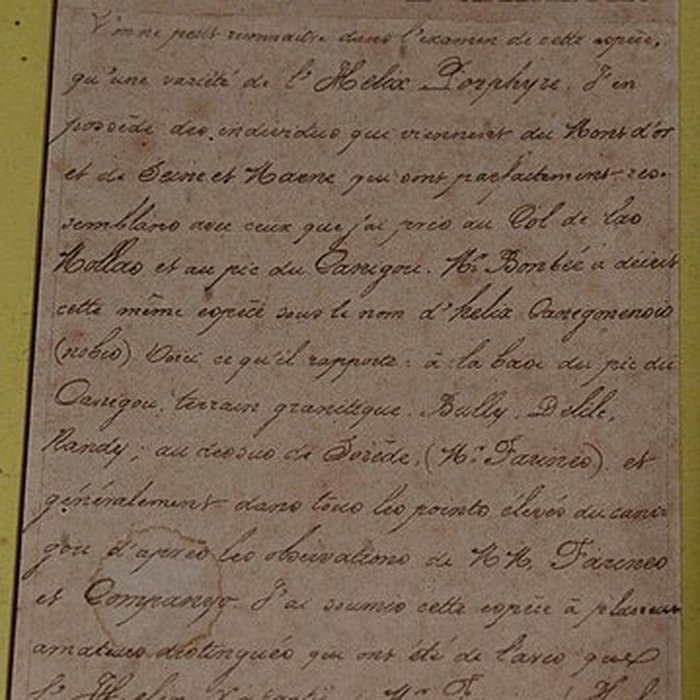 L'on ne peut reconnaitre dans l'examen de cette espèce,
qu'une variété de l'Helix Porphyre. J'en
possède des individus qui viennent du Mont d'or
et de Seine et Marne qui sont parfaitement res-
semblans avec ceux que j'ai pris au Col de las
Mollas et au pic du Canigou. Mr. Bonbée a décrit
cette même espèce sous le nom d'helix Canegonensis
(nobis) Voici ce qu'il rapporte : à la base du pic du
Canegou, terrain granitique. Bully, Delile,
Randy ; au dessus de Sorède, (Mr. Farines) et
généralement dans tous les points élevés du cani-
gou d'après les observations de MM. Farines
et Companyo. J'ai soumis cette espèce à plusieurs
amateurs distingués qui ont été de l'avis que
l'Helix